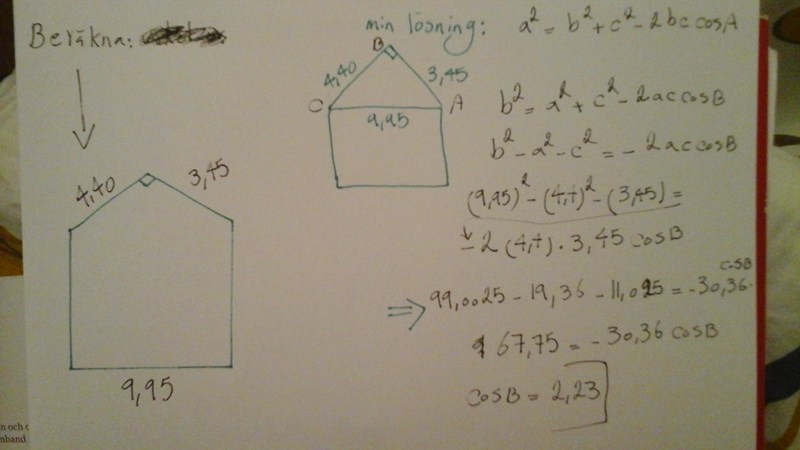 Beräkna:
4,40
3,45
9,95
min lösning:
B
4,40
3,45
C
A
9,95
a² = b² + c² - 2bc cosA
b² = a² + c² - 2ac cosB
b² - a² - c² = - 2ac cosB
(9,95)² - (4,4)² - (3,45) =
- 2 (4,4) · 3,45 cosB
⇒ 99,0025 - 19,36 - 11,025 = -30,36· cosB
67,75 = - 30,36 cosB
cosB = 2,23
n och
mband